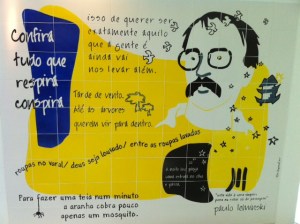 Confira
tudo que
respira
conspira
isso de querer ser
exatamente aquilo
que a gente é
ainda vai
nos levar além.
Tarde de vento.
Até as árvores
querem vir para dentro.
roupas no varal/ deus seja louvado/ entre as roupas lavadas
Para fazer uma teia num minuto
a aranha cobra pouco
apenas um mosquito.
paulo leminski